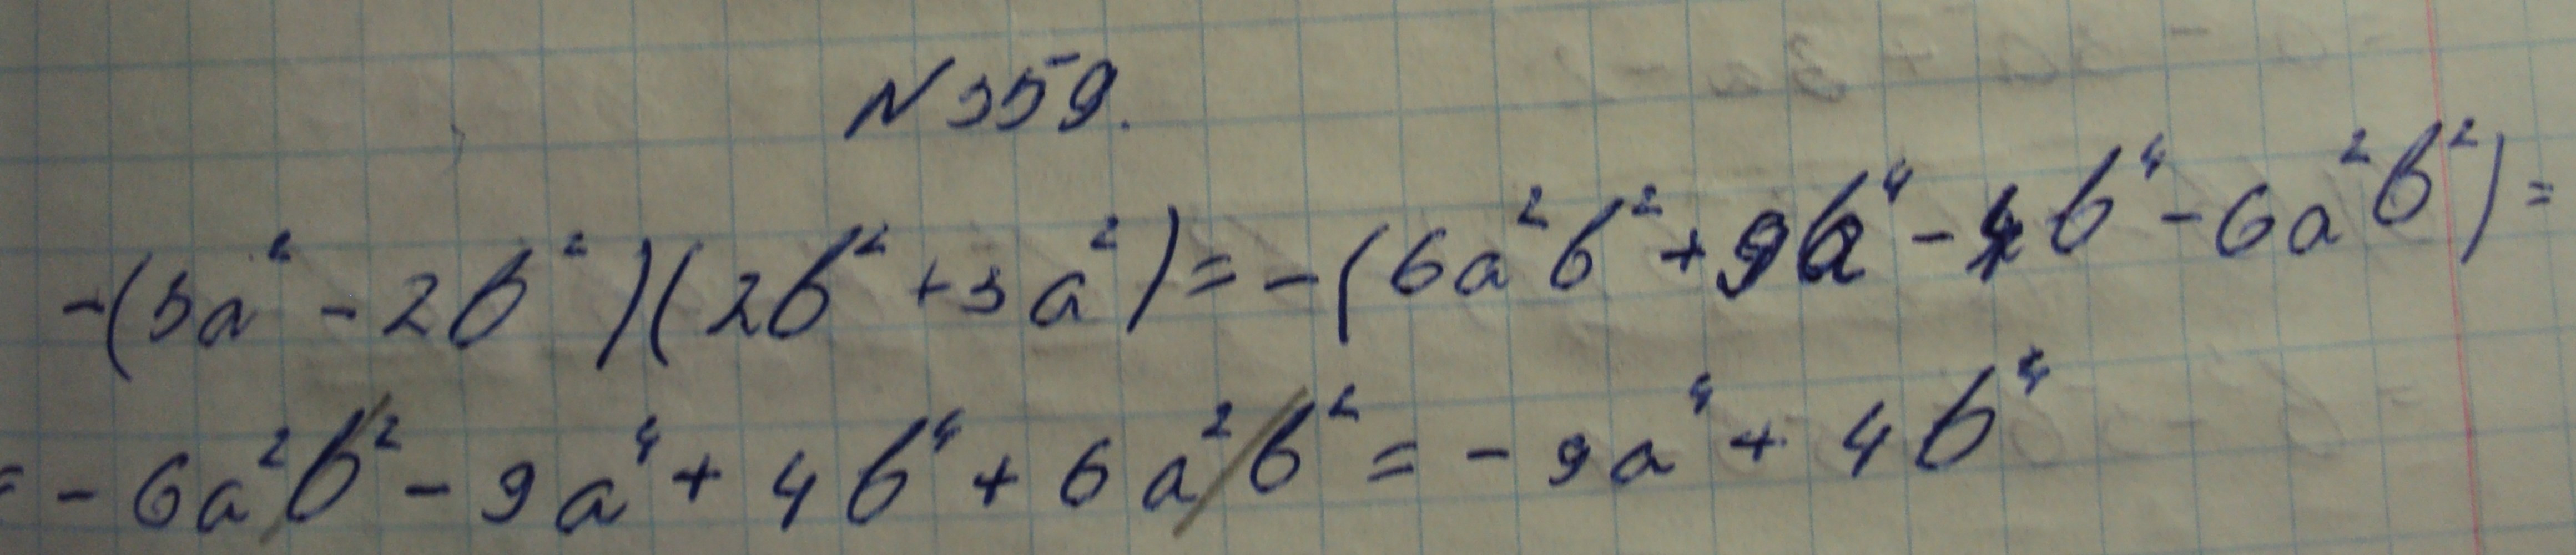 N 359.
-(3a² - 2b²)(2b² + 3a²) = -(6a²b² + 9a⁴ - 4b⁴ - 6a²b²) =
= - 6a²b² - 9a⁴ + 4b⁴ + 6a²b² = - 9a⁴ + 4b⁴